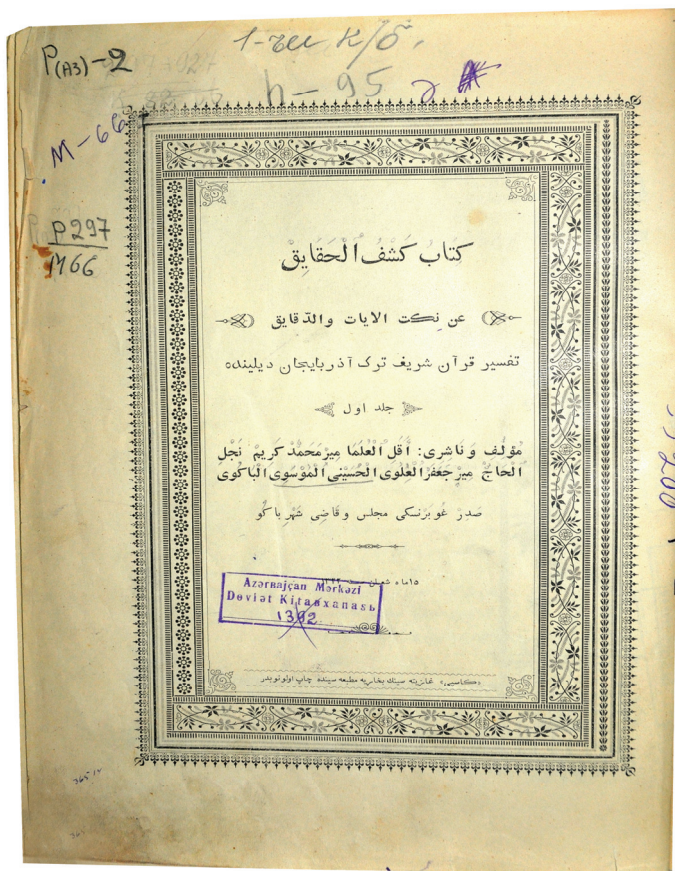 P(Аз)-2
1-чи к/б.
h-95
М-66
P297
М66
كتاب كَشفُ الْحَقايِقْ
عن نِكت الايات والدّقايق
تفسير قرآن شريف ترك آذربايجان ديلينده
جلد اول
مؤلّف وَ ناشرى: اَقَلّ الْعُلَمَا ميرمَحَمَّدْ كَريمْ نَجْلِ
الْحاجّ ميرْ جعفرْ الْعَلَوى الْحُسَيْنى الْمُوْسَوى الْباكُوى
صدر غوبرنسكى مجلس و قاضى شهر باكو
١٥ ماه شعبان
Azərʙajçan Mərkəzi
Dɵvlət Kitaʙxanasь
1392
«كاسپى» غازيته سينك بخاريه مطبعه سينده چاپ اولونوبدر
36514